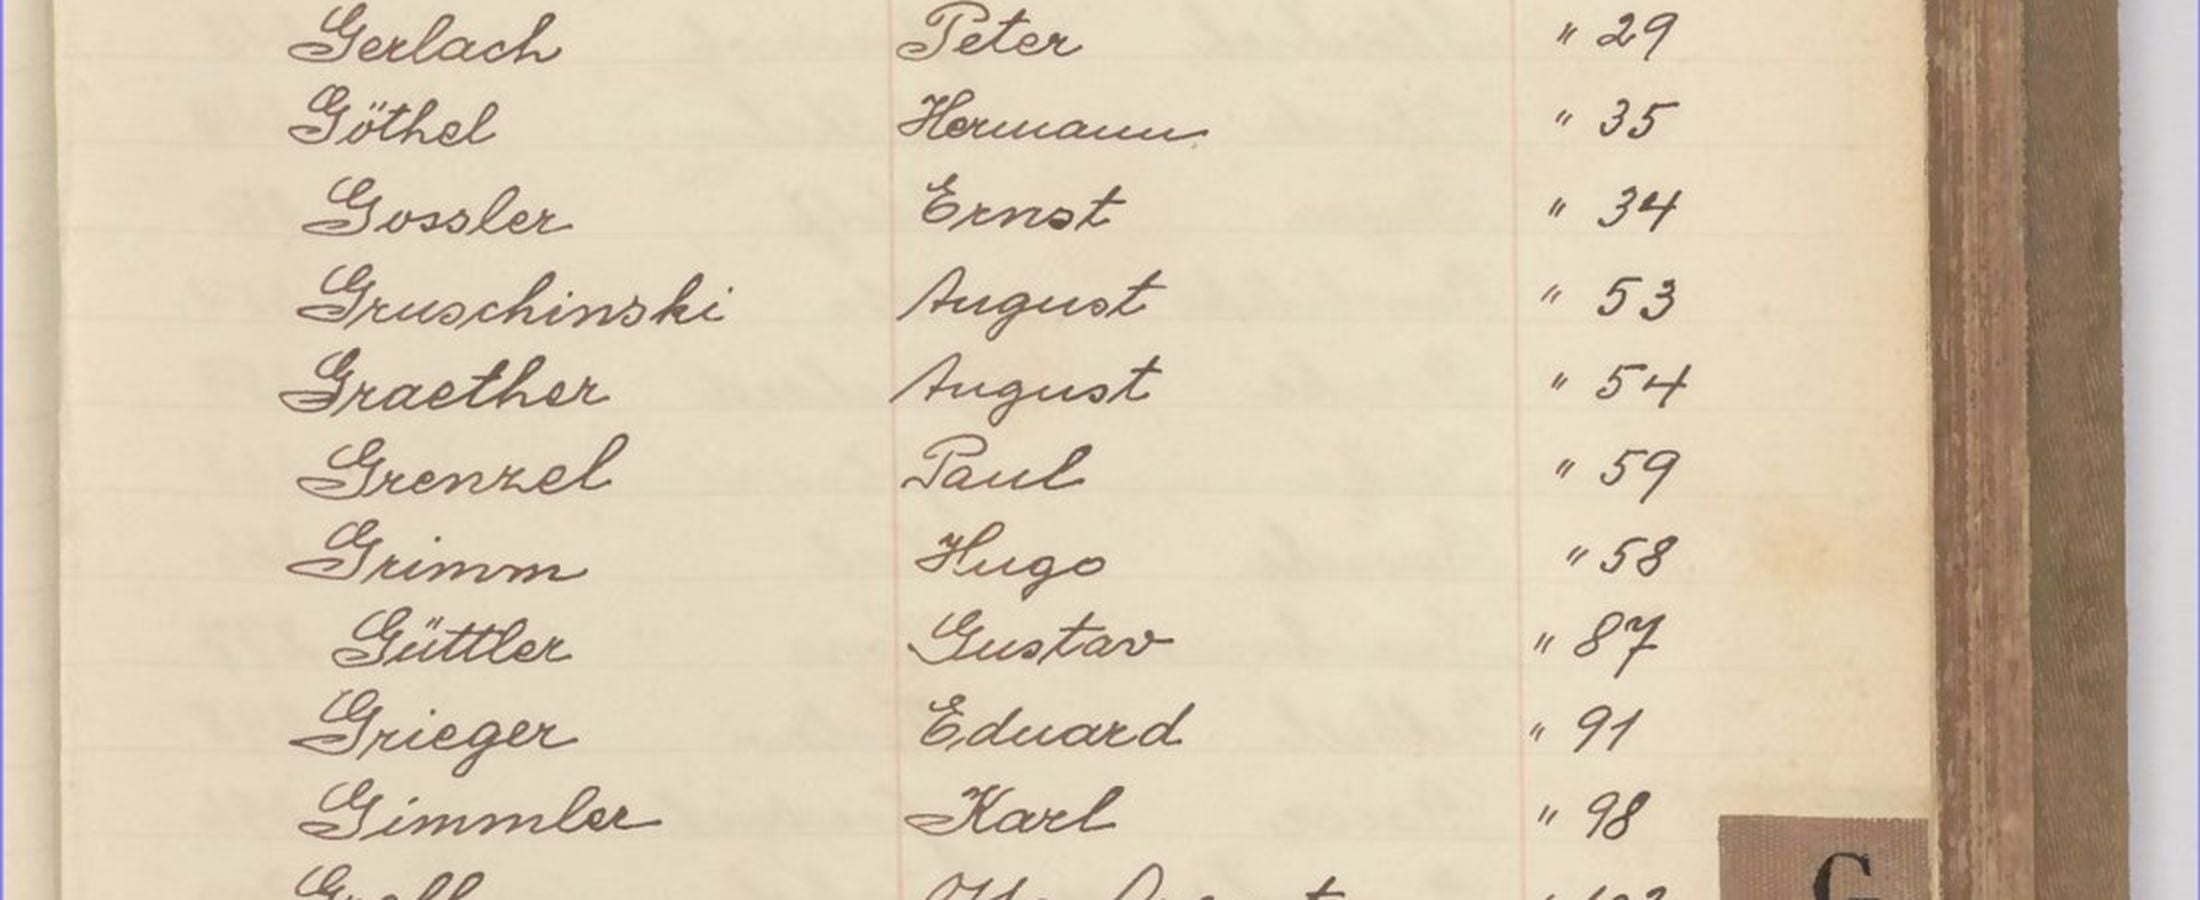 Gerlach Peter " 29
Göthel Hermann " 35
Gossler Ernst " 34
Gruschinski August " 53
Graether August " 54
Grenzel Paul " 59
Grimm Hugo " 58
Güttler Gustav " 87
Grieger Eduard " 91
Gimmler Karl " 98
G